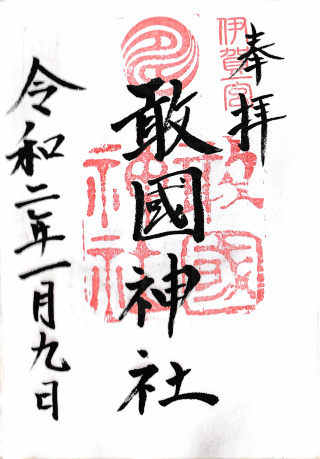 奉拝
伊賀一宮
敢國神社
敢國神社
令和二年一月九日